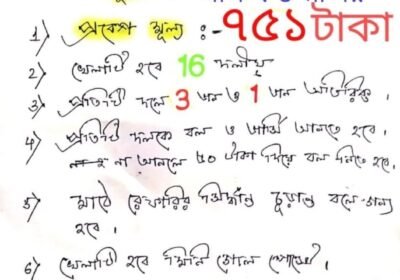 1) প্রবেশ মূল্য :- ৭৫১ টাকা
2) খেলাটি হবে 16 দলীয়
3) প্রতিটি দলে 3 জন ও 1 জন অতিরিক্ত।
4) প্রতিটি দলকে বল ও জার্সি আনতে হবে।
না আনলে ৫০ টাকা দিয়ে বল নিতে হবে।
5) মাঠে রেফারির সিদ্ধান্ত চূড়ান্ত বলে গন্য
হবে।
6) খেলাটি হবে মিনি গোল পোস্টে।